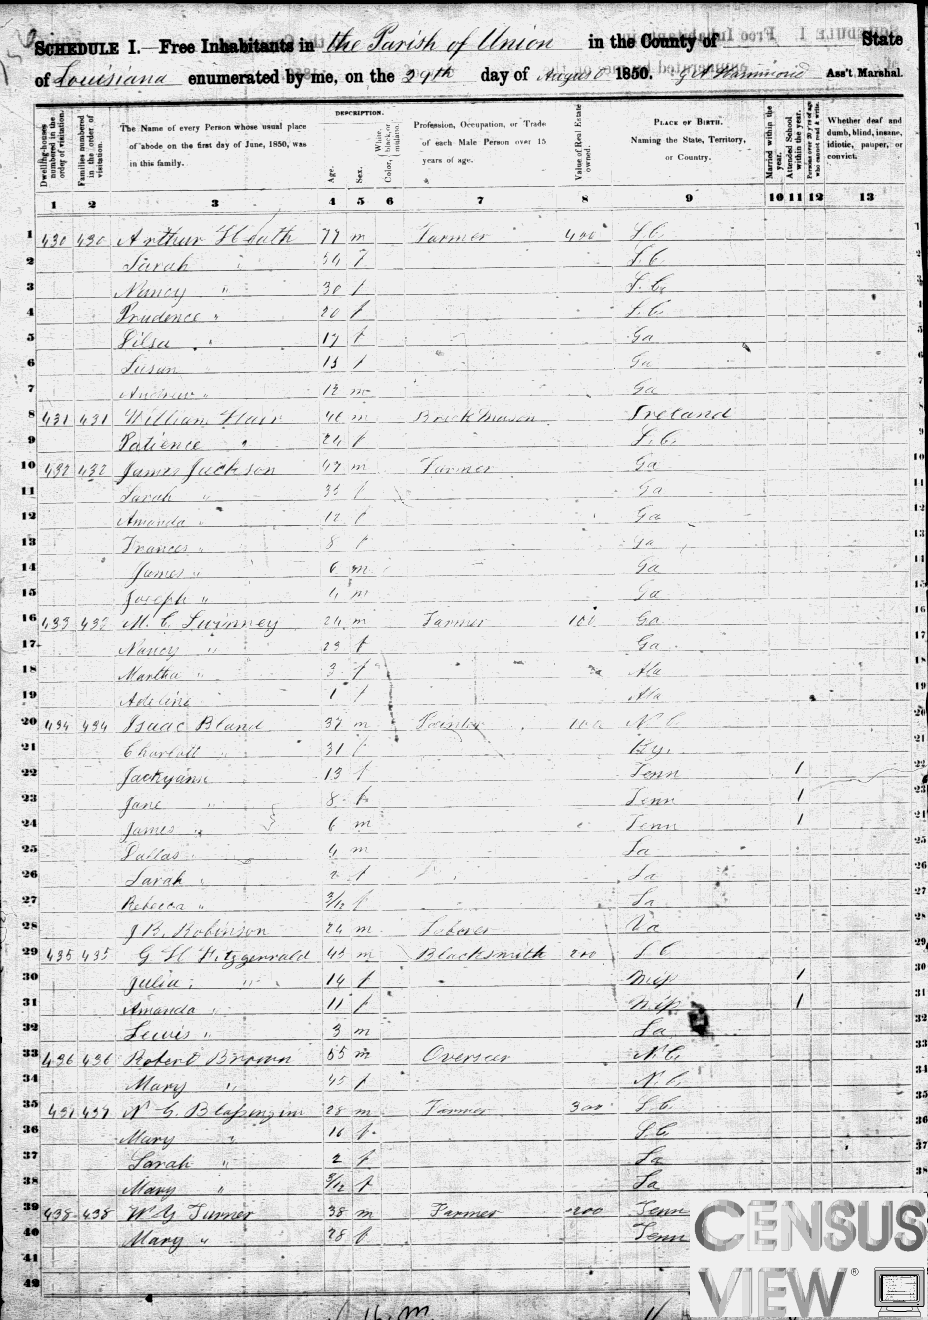 SCHEDULE I.—Free Inhabitants in the Parish of Union in the County of State
of Louisiana enumerated by me, on the 29th day of August 1850. Ass't Marshal.
Dwelling-houses numbered in the order of visitation.
Families numbered in the order of visitation.
The Name of every Person whose usual place of abode on the first day of June, 1850, was in this family.
DESCRIPTION.
Age.
Sex.
Color, White, black, or mulatto.
Profession, Occupation, or Trade of each Male Person over 15 years of age.
Value of Real Estate owned.
PLACE OF BIRTH. Naming the State, Territory, or Country.
Married within the year.
Attended School within the year.
Persons over 20 y'rs of age who cannot read & write.
Whether deaf and dumb, blind, insane, idiotic, pauper, or convict.
1 2 3 4 5 6 7 8 9 10 11 12 13
1 430 430 Arthur Heath 77 m Farmer 400 S.C. 1
2 Sarah " f S.C.
3 Nancy " 30 f S.C.
4 Prudence " 20 f S.C.
5 17 f Ga
6 Susan " f Ga
7 Andrew " 12 m Ga
8 431 431 William Hair 46 m Brick Mason Ireland
9 Patience " 24 f S.C.
10 432 432 James Jackson 47 m Farmer Ga
11 Sarah " 35 f Ga
12 Amanda " 12 f Ga
13 Frances " 8 f Ga
14 James " 6 m Ga
15 Joseph " 4 m Ga
16 433 433 M. C. Swinney 24 m Farmer 100 Ga
17 Nancy " 23 f Ga
18 Martha " 3 f Ala
19 Adeline 1 f Ala
20 434 434 Isaac Bland 37 m 100 N.C.
21 31 f Ky.
22 Jackyann " 13 f Tenn 1
23 Jane " 8 f Tenn 1
24 James " 6 m Tenn 1
25 Dallas " 4 m La
26 Sarah " 2 f La
27 Rebecca " 3/12 f La
28 J. R. Robinson 24 m Laborer Va
29 435 435 G H Fitzgerrald 45 m Blacksmith 200 S.C
30 Julia " 14 f Miss 1
31 Amanda " 11 f Miss 1
32 Lewis " 3 m La
33 436 436 Robert Brown 55 m Overseer N.C.
34 Mary " 45 f N.C.
35 437 437 N. G. Blassingim 28 m Farmer 300 S.C.
36 Mary " 16 f S.C.
37 Sarah " 2 f La
38 Mary " 3/12 f La
39 438 438 W. G Turner 38 m Farmer 200 Tenn
40 Mary " 28 f Tenn
41
CENSUS
VIEW®